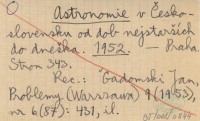 Astronomie v Česko-
slovensku od dob nejstarších
do dneška. 1952. Praha
Stron 343.
Rec.: Gadomski Jan,
Problemy (Warszawa) 9 (1953),
nr 6 (87): 431, il.